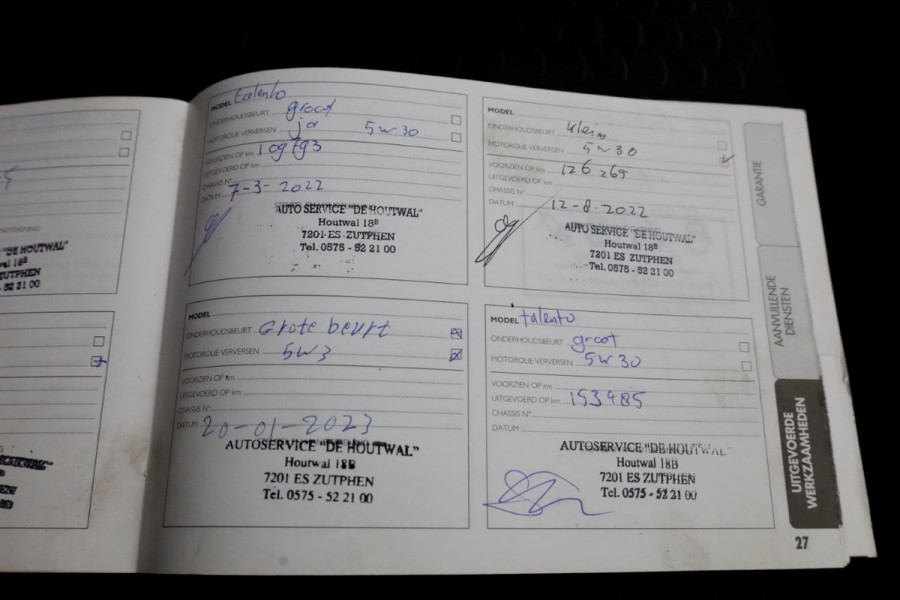 "DE HOUTWAL"
ZUTPHEN
52 21 00
MODEL talento
ONDERHOUDSBEURT groot
MOTOROLIE VERVERSEN ja 5w30
VOORZIEN OP km
UITGEVOERD OP km
CHASSIS N°
DATUM 7-3-2022
AUTO SERVICE "DE HOUTWAL"
Houtwal 18B
7201 ES ZUTPHEN
Tel. 0575 - 52 21 00
MODEL
ONDERHOUDSBEURT klein
MOTOROLIE VERVERSEN 5w30
VOORZIEN OP km 126 265
UITGEVOERD OP km
CHASSIS N°
DATUM 12-8-2022
AUTO SERVICE "DE HOUTWAL"
Houtwal 18B
7201 ES ZUTPHEN
Tel. 0575 - 52 21 00
MODEL
ONDERHOUDSBEURT Grote beurt
MOTOROLIE VERVERSEN 5w3
VOORZIEN OP km
UITGEVOERD OP km
CHASSIS N°
DATUM 20-01-2023
AUTOSERVICE "DE HOUTWAL"
Houtwal 18B
7201 ES ZUTPHEN
Tel. 0575 - 52 21 00
MODEL talento
ONDERHOUDSBEURT groot
MOTOROLIE VERVERSEN 5w30
VOORZIEN OP km
UITGEVOERD OP km 153485
CHASSIS N°
DATUM
AUTOSERVICE "DE HOUTWAL"
Houtwal 18B
7201 ES ZUTPHEN
Tel. 0575 - 52 21 00
GARANTIE
AANVULLENDE
DIENSTEN
UITGEVOERDE
WERKZAAMHEDEN
27